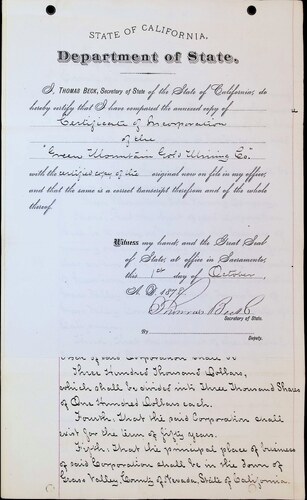 STATE OF CALIFORNIA.
Department of State.
I, THOMAS BECK, Secretary of State of the State of California, do
hereby certify that I have compared the annexed copy of
Certificate of Incorporation
of the
"Green Mountain Gold Mining Co."
with the certified copy of the original now on file in my office,
and that the same is a correct transcript therefrom and of the whole
thereof.
Witness my hand, and the Great Seal
of State, at office in Sacramento,
this 1st day of October
A. D. 1879
Thomas Beck
Secretary of State.
By
Deputy.
of said Corporation shall be
Three Hundred Thousand Dollars,
which shall be divided into Three Thousand Shares
of One Hundred Dollars each.
Fourth: That the said Corporation shall
exist for the term of fifty years.
Fifth: That the principal place of business
of said Corporation shall be in the Town of
Grass Valley, County of Nevada, State of California.